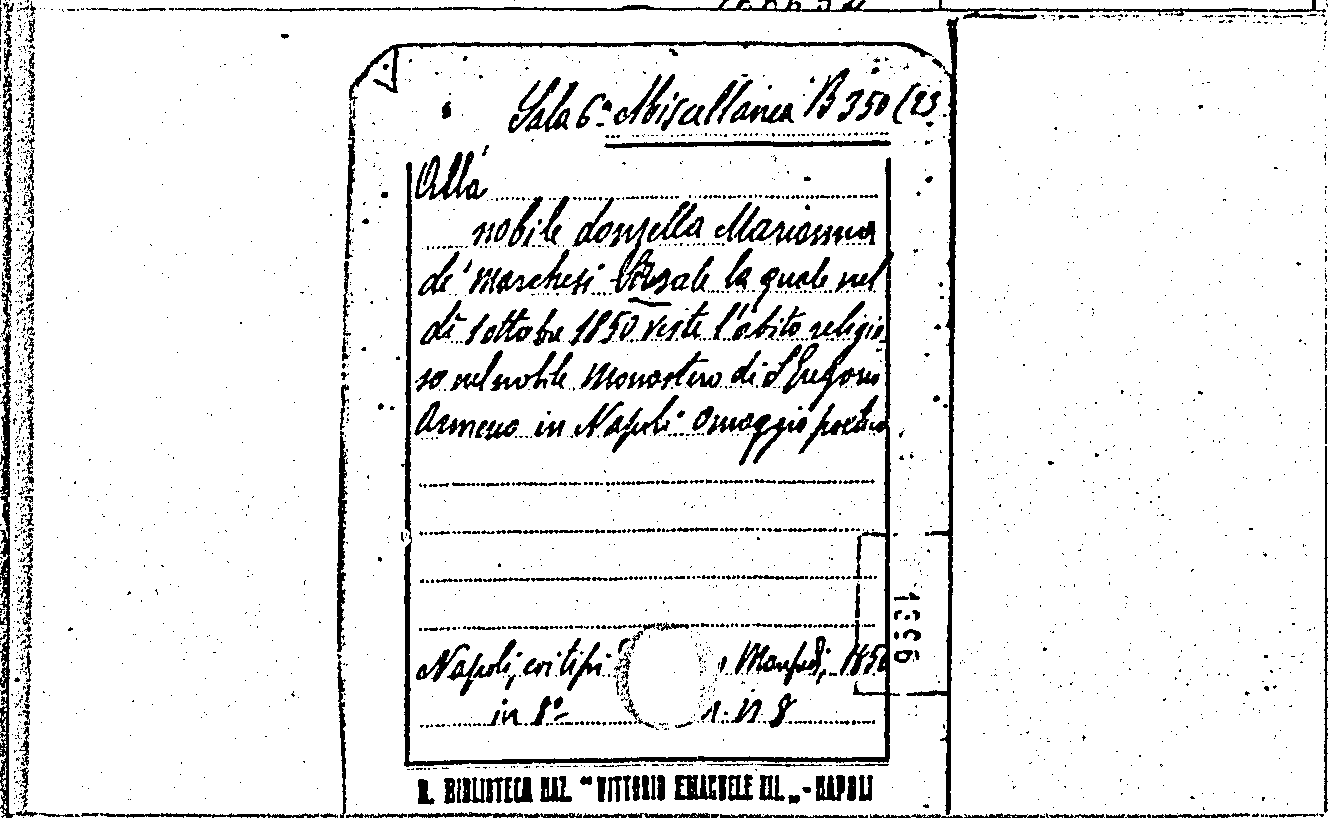 Sala 6ª Miscellanea B 350 (23
Alla
nobile donzella Marianna
de' Marchesi la quale nel
dì 1 ottobre 1850 veste l'abito religio
so nel nobile Monastero di S Gregorio
Armeno in Napoli Omaggio poetico
Napoli, coi tipi Manfredi, 1850
in 8º n 8
1356
R. BIBLIOTECA NAZ. "VITTORIO EMANUELE III.„ - NAPOLI